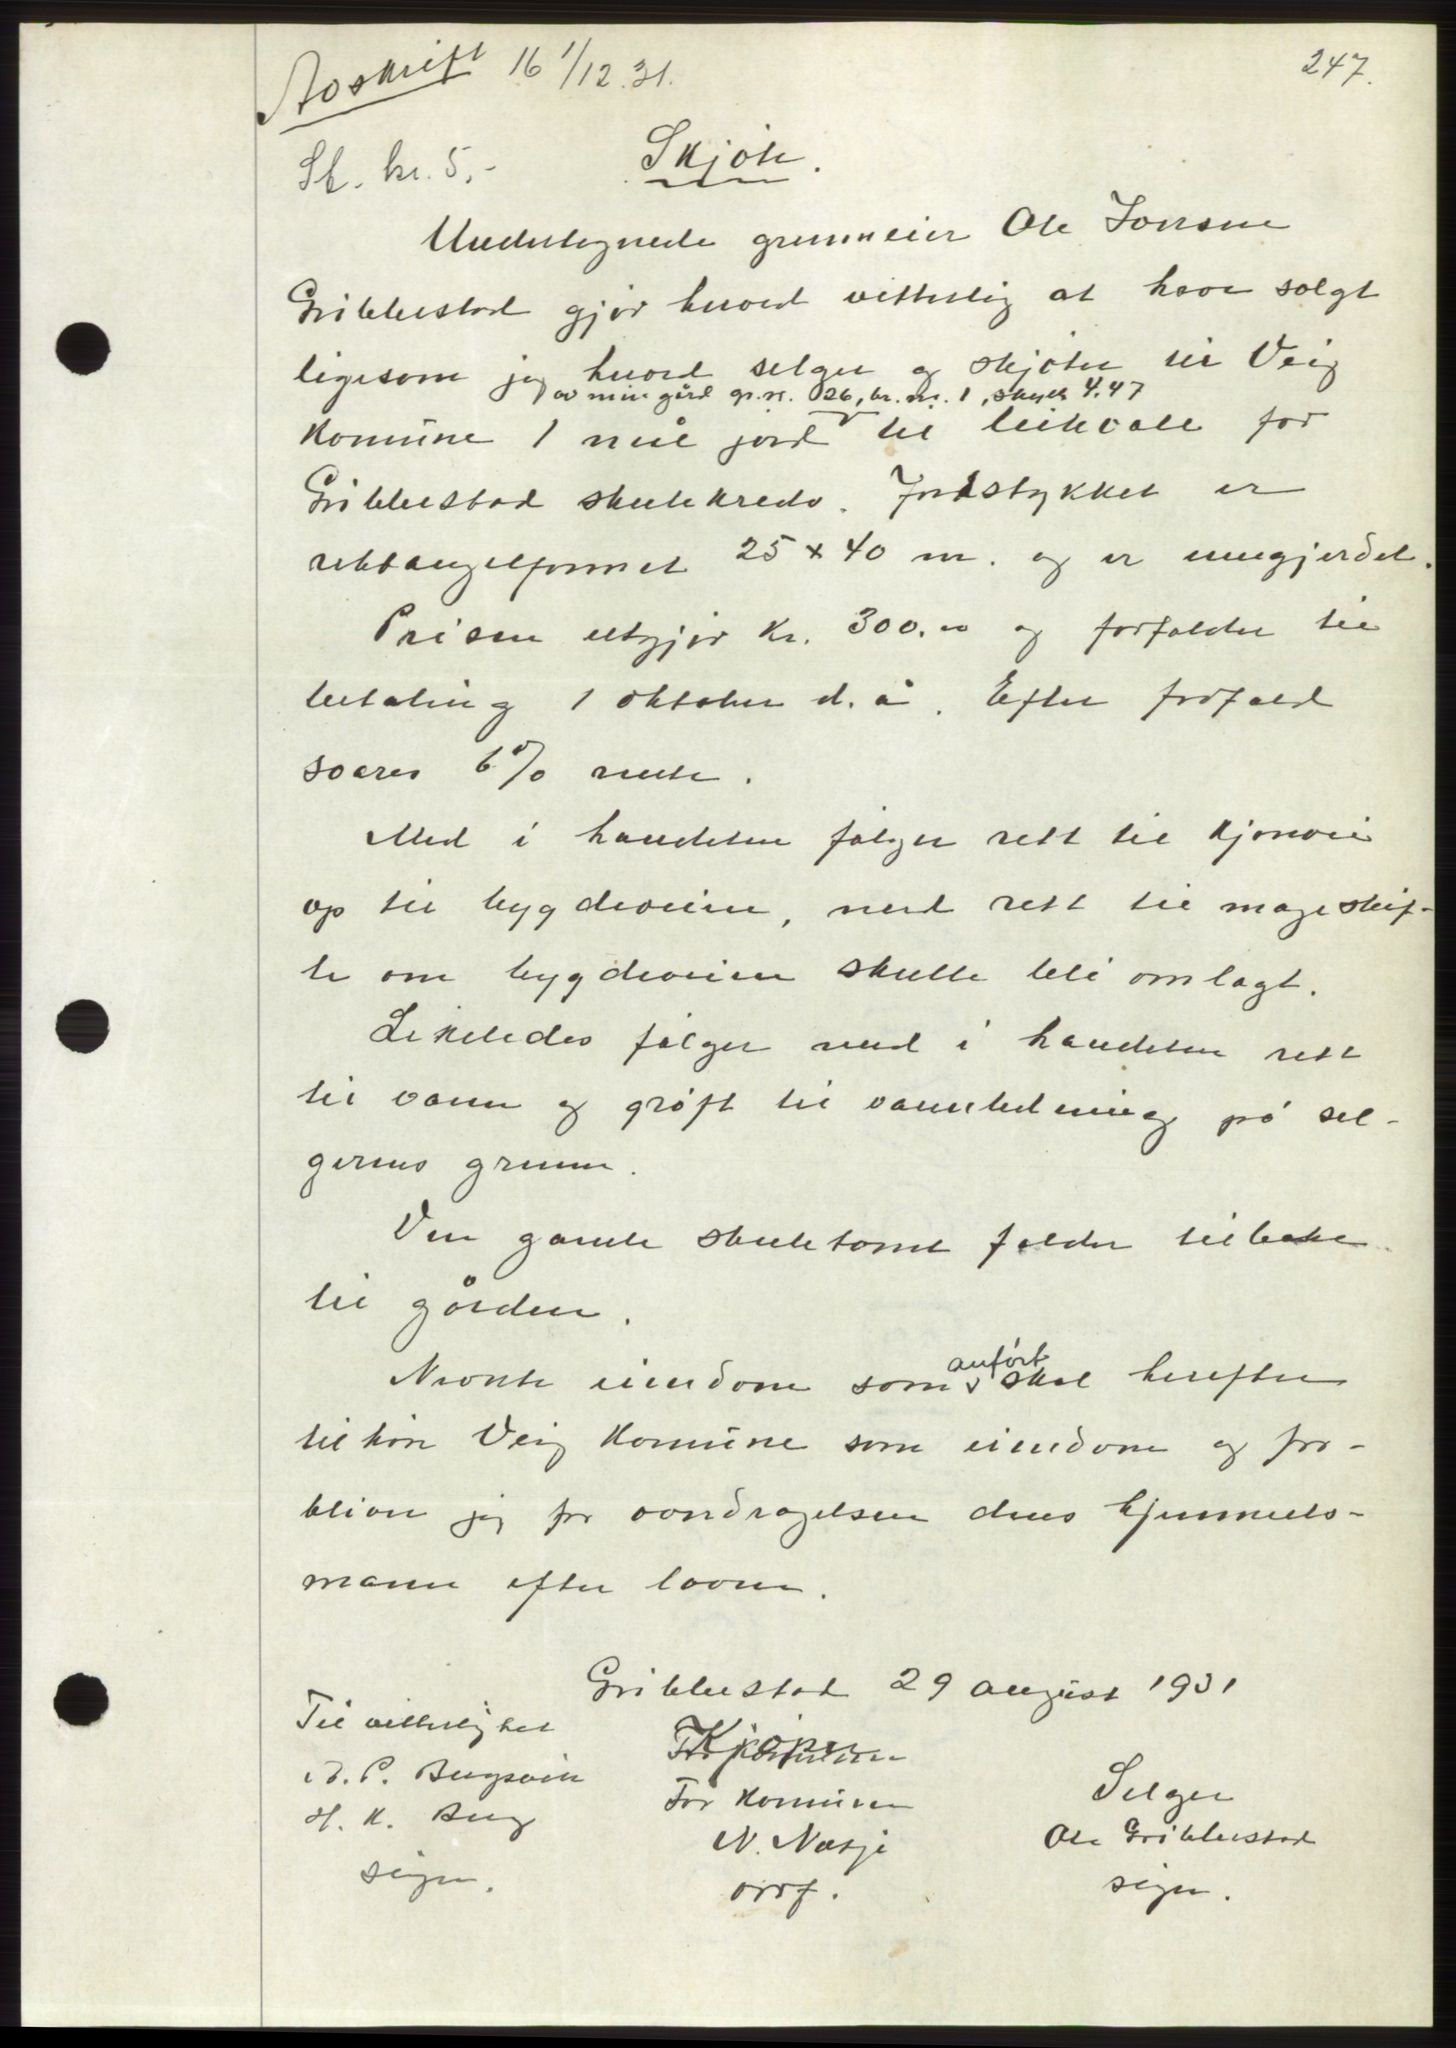 Avskrift 16 1/12.31.
247.
St. kr. 5,-
Skjöte.
Undertegnede grunneier Ole Jonsen
Gribbestad gjör herved vitterlig at have solgt
ligesom jeg herved selger og skjöter til Veöy
av min gård gr.nr. 26, br. nr. 1, skyld 4.47
Komune 1 mål jord til leikvall for
Gribbestad skulekreds. Jordstykket er
rektangelformet 25 x 40 m. og er inngjerdet.
Prisen utgjör Kr. 300.00 og forfalder til
betaling 1 oktober d. å. Efter forfald
svares 6% rente.
Med i handelen fölger rett til Kjörevei
op til bygdeveien, med rett til mageskif-
te om bygdeveien skulle bli omlagt.
Likeledes fölger med i handelen rett
til vann og gröft til vannledning på sel-
gerens grunn.
Den gamle skuletomt falder tilbake
til gården.
Nevnte eiendom som anfört skal herefter
tilhöre Veöy Komune som eiendom og for-
bliver jeg for overdragelsen dens hjemmels-
mann efter loven.
Gribbestad 29 august 1931
Til vitterlighet
Kjöper
For Komunen
Selger
H. K. Berg
N. Nesje
Ole Gribbestad
sign.
ordf.
sign.